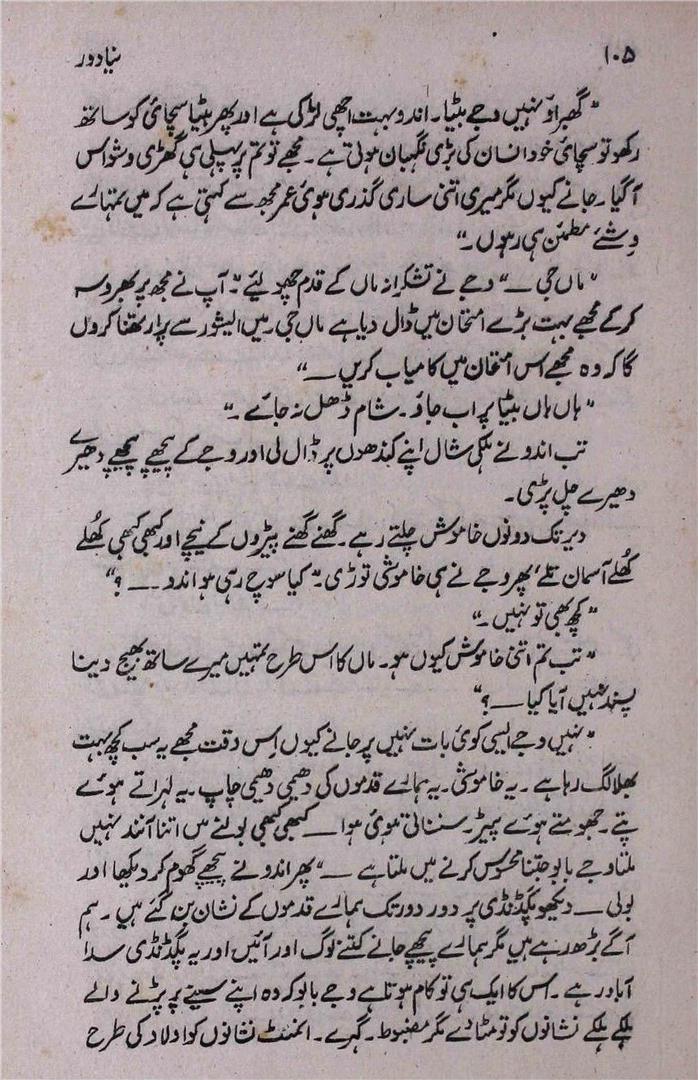 ۱۰۵ نیا دور
"گھبراؤ نہیں وجے بیٹیا۔ اندو بہت اچھی لڑکی ہے اور پھر بیٹیا سچائی کو ساتھ
رکھو تو سچائی خود انسان کی بڑی نگہبان ہوتی ہے۔ مجھے تو تم پر پہلی ہی گھڑی وشواس
آگیا۔ جانے کیوں مگر میری اتنی ساری گذری ہوئی عمر مجھ سے کہتی ہے کہ میں تمہارے
وشئے مطمئن ہی رہوں۔"
"ماں جی ــ" وجے نے تشکرانہ ماں کے قدم چھو لیئے "۔ آپ نے مجھ پر بھروسہ
کر کے مجھے بہت بڑے امتحان میں ڈال دیا ہے ماں جی۔ میں ایشور سے پرارتھنا کروں
گا کہ وہ مجھے اس امتحان میں کامیاب کریں ــ"
"ہاں ہاں بیٹیا پر اب جاؤ۔ شام ڈھل نہ جائے۔"
تب اندو نے ہلکی شال اپنے کندھوں پر ڈال لی اور وجے کے پیچھے پیچھے دھیرے
دھیرے چل پڑی۔
دیر تک دونوں خاموش چلتے رہے۔ گھنے گھنے پیڑوں کے نیچے اور کبھی کبھی کُھلے
کُھلے آسمان تلے، پھر وجے نے ہی خاموشی توڑی۔ "کیا سوچ رہی ہو اندو ــ ؟"
"کچھ بھی تو نہیں۔"
"تب تم اتنی خاموش کیوں ہو۔ ماں کا اس طرح تمہیں میرے ساتھ بھیج دینا
پسند نہیں آیا کیا ــ ؟"
"نہیں وجے ایسی کوئی بات نہیں پر جانے کیوں اِس وقت مجھے یہ سب کچھ بہت
بھلا لگ رہا ہے۔ یہ خاموشی۔ یہ ہمارے قدموں کی دھیمی دھیمی چاپ۔ یہ لہراتے ہوئے
پتے۔ جھومتے ہوئے پیڑ۔ سنسناتی ہوئی ہوا ــ کبھی کبھی بولنے میں اتنا آنند نہیں
ملتا وجے بابو جتنا محسوس کرنے میں ملتا ہے ــ" پھر اندو نے پیچھے گھوم کر دیکھا اور
بولی ــ دیکھو پگڈنڈی پر دور دور تک ہمارے قدموں کے نشان بن گئے ہیں۔ ہم
آگے بڑھ رہے ہیں مگر ہمارے پیچھے جانے کتنے لوگ اور آئیں اور یہ پگڈنڈی سدا
آباد رہے۔ اس کا ایک ہی تو کام ہوتا ہے وجے بابو کہ وہ اپنے سینے پر پڑنے والے
ہلکے ہلکے نشانوں کو تو مٹا دے مگر مضبوط۔ گہرے۔ انمٹ نشانوں کو اولاد کی طرح